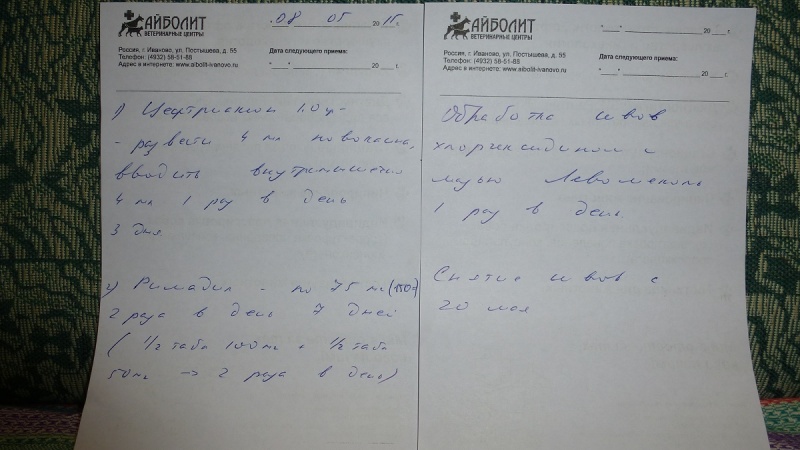 АЙБОЛИТ
ВЕТЕРИНАРНЫЕ ЦЕНТРЫ
08 05 2015 г.
Россия, г. Иваново, ул. Постышева, д. 55
Телефон: (4932) 58-51-88
Адрес в интернете: www.aibolit-ivanovo.ru
Дата следующего приема:
"___" ____________ 20 ___ г.
1) Цефтриаксон 1,0 гр -
- развести 4 мл новокаина,
вводить внутримышечно
4 мл 1 раз в день
3 дня
2) Римадил - по 75 мг (
2 раза в день 7 дней
( 1/2 табл 100 мг + 1/2 табл
50 мг → 2 раза в день)
АЙБОЛИТ
ВЕТЕРИНАРНЫЕ ЦЕНТРЫ
"___" ____________ 20 ___ г.
Россия, г. Иваново, ул. Постышева, д. 55
Телефон: (4932) 58-51-88
Адрес в интернете: www.aibolit-ivanovo.ru
Дата следующего приема:
"___" ____________ 20 ___ г.
Обработка швов
хлоргексидином с
мазью Левомеколь
1 раз в день
Снятие швов с
20 мая